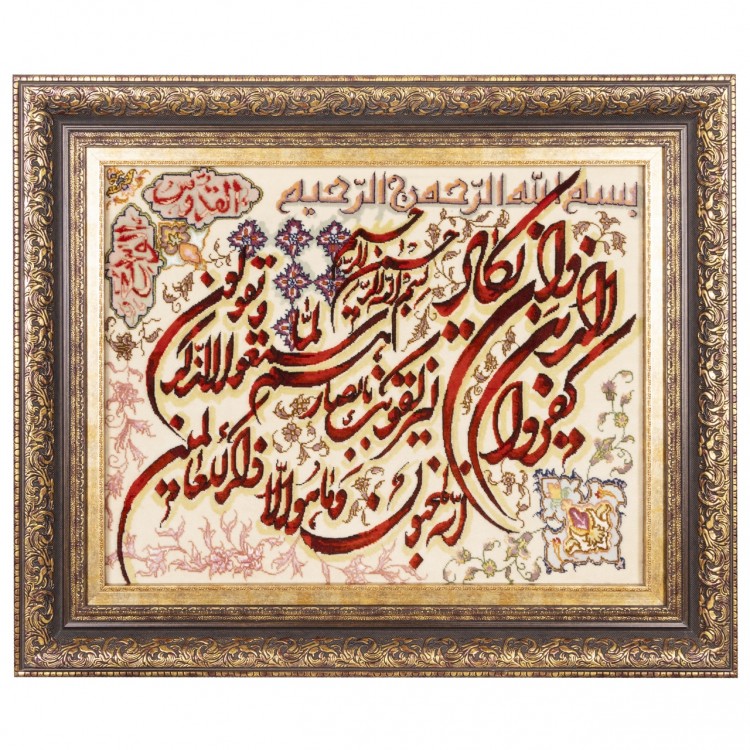 بسم الله الرحمن الرحیم
القدوس
بسم الله الرحمن الرحیم
وان یکاد الذین کفروا
لیزلقونک بابصارهم لما سمعوا الذکر
ویقولون
انه لمجنون وما هو الا ذکر للعالمین